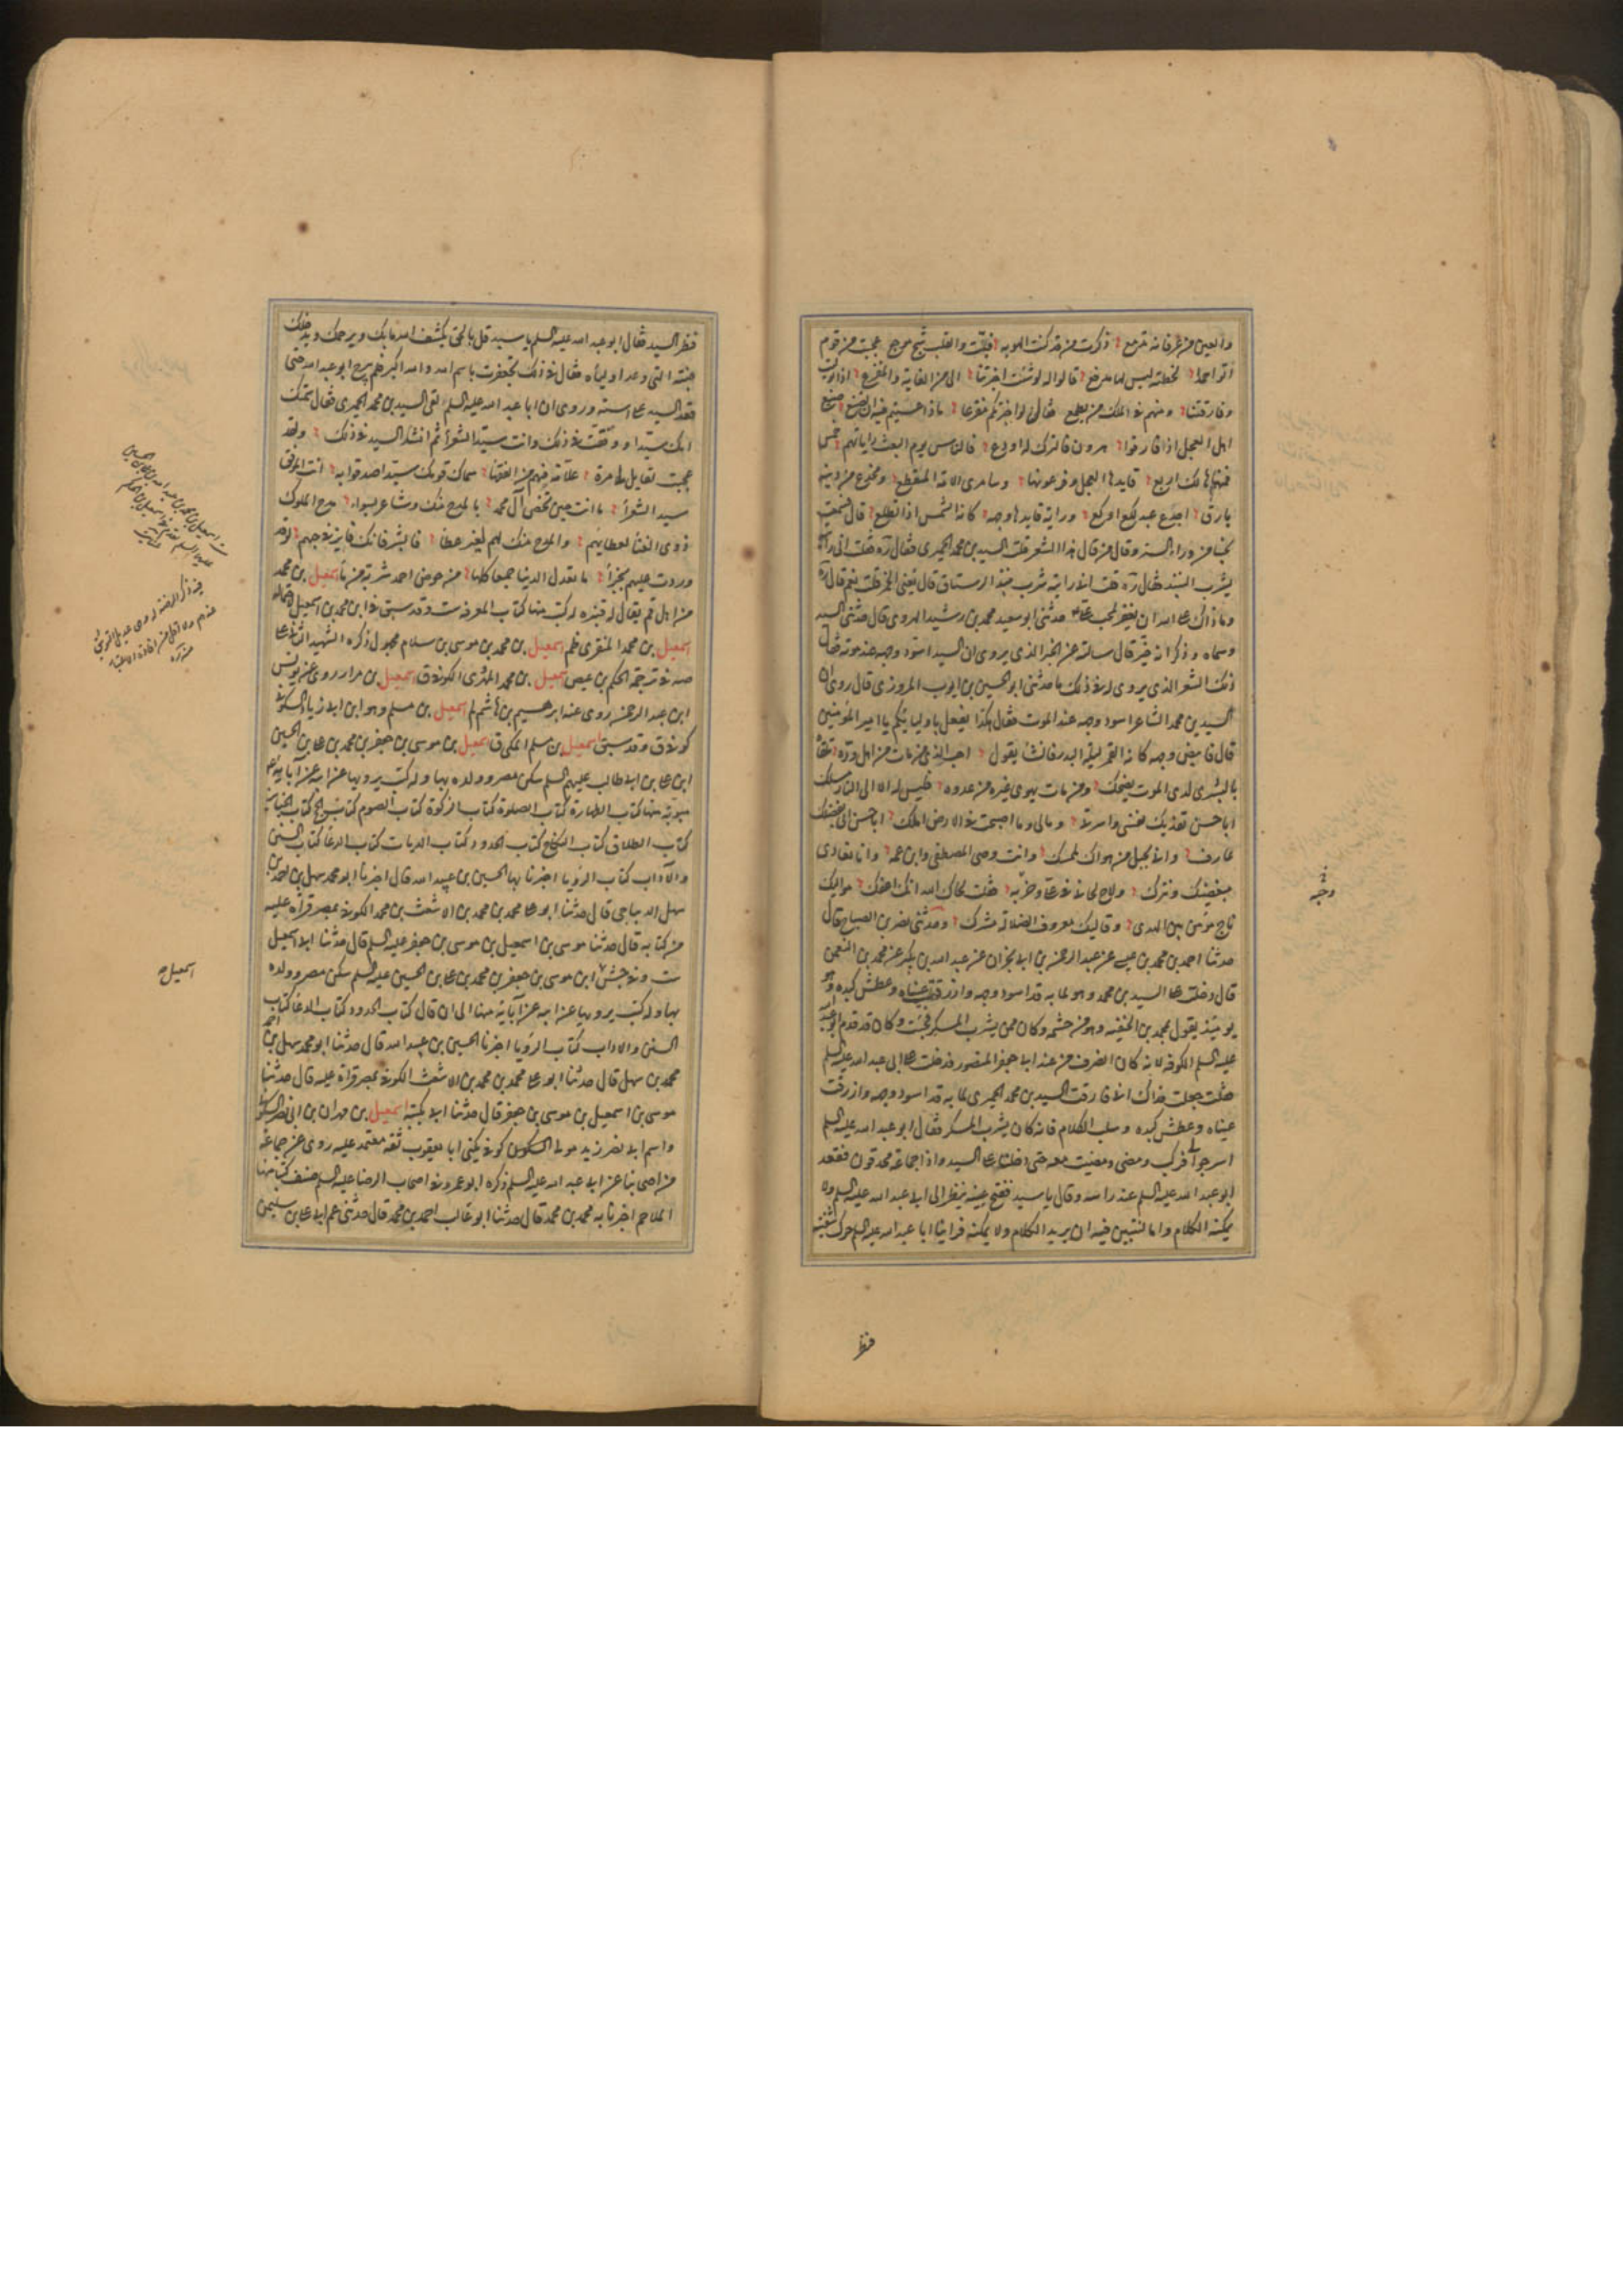 والعين من عرفانه تدمع ذكرت من قد كنت الهو به فبت والقلب شج موجع عجبت من قوم
اتوا احمدا بخطة ليس لها مدفع قالوا له لو شئت اخبرتنا الى من الغاية والمفزع اذا توليت
وفارقتنا ومنهم في الملك من يطمع فقال لو اخبرتكم مفزعا ماذا عسيتم فيه ان تصنعوا صنيع
اهل العجل اذ فارقوا هرون فالترك له اودع فالناس يوم البعث راياتهم خمس
فمنها هالك اربع قايدها العجل وفرعونها وسامرى الامة المفظع ومخدع من دينه
مارق اجدع عبد لكع اوكع وراية قايدها وجهه كانه الشمس اذا تطلع قال فسمعت
نحيبا من وراء الستر وقال من قال هذا الشعر قلت السيد بن محمد الحميرى فقال ره قلت انى رايته
يشرب النبيذ فقال ره قلت انى رايته شرب نبيذ الرستاق قال تعنى الخمر قلت نعم قال ره
وما ذاك على الله ان يغفر لمحب على حدثنى ابو سعيد محمد بن رشيد الهروى قال حدثنى السيد
وسماه وذكر انه خير قال سالته عن الخبر الذى يروى ان السيد اسود وجهه عند موته فقال
ذلك الشعر الذى يروى له فى ذلك ما حدثنى ابو الحسين بن ايوب المروزى قال روى ان
السيد بن محمد الشاعر اسود وجهه عند الموت فقال هكذا يفعل باوليائكم يا امير المؤمنين
قال فابيض وجهه كانه القمر ليلة البدر فانشا يقول احب الذى من مات من اهل وده تلقاه
بالبشرى لدى الموت يضحك ومن مات يهوى غيره من عدوه فليس له الا الى النار مسلك
ابا حسن تفديك نفسى واسرتى ومالى وما اصبحت فى الارض املك ابا حسن انى بفضلك
عارف وانى بحبل من هواك لممسك وانت وصى المصطفى وابن عمه وانا نعادى
مبغضيك ونترك ولاح لحانى فى على وحزبه فقلت لحاك الله انك اعفك مواليك
ناج مؤمن بين الهدى وقاليك معروف الضلالة مشرك وحدثنى نصر بن الصباح قال
حدثنا احمد بن محمد بن عيسى عن عبد الرحمن بن ابى نجران عن عبد الله بن بكير عن محمد بن النعمن
قال دخلت على السيد بن محمد وهو لما به قد اسود وجهه وازرقت عيناه وعطش كبده وهو
يومئذ يقول بمحمد بن الحنفيه وهو من حشمه وكان ممن يشرب المسكر فجئت وكان قد قدم ابو عبد الله
عليه السلم الكوفه لانه كان انصرف من عند ابى جعفر المنصور فدخلت على ابى عبد الله عليه السلم
فقلت جعلت فداك انى فارقت السيد بن محمد الحميرى لما به قد اسود وجهه وازرقت
عيناه وعطش كبده وسلب الكلام فانه كان يشرب المسكر فقال ابو عبد الله عليه السلم
اسرجوا لى فركب ومضى ومضيت معه حتى دخلنا على السيد واذا جماعة محدقون فقعد
ابو عبد الله عليه السلم عند راسه وقال يا سيد ففتح عينيه ينظر الى ابى عبد الله عليه السلم ولا
يمكنه الكلام وانا لنتبين فيه ان يريد الكلام ولا يمكنه فراينا ابا عبد الله عليه السلم حرك شفتيه
فنظر
وجهه
فنطق السيد فقال ابو عبد الله عليه السلم يا سيد قل بالحق يكشف الله ما بك ويرحمك ويدخلك
جنته التى وعد اولياءه فقال فى ذلك تجعفرت باسم الله والله اكبر فلم يبرح ابو عبد الله حتى
قعد السيد على استه وروى ان ابا عبد الله عليه السلم لقى السيد بن محمد الحميرى فقال سمتك
امك سيدا ووفقت فى ذلك وانت سيد الشعراء ثم انشد السيد فى ذلك ولقد
عجبت لقايل لى مرة علامة فهم من الفقهاء سماك قومك سيدا صدقوا به انت الموفق
سيد الشعراء ما انت حين تخص آل محمد بالمدح منك وشاعر بسواء مدح الملوك
ذوى الغنا لعطائهم والمدح منك لهم لغير عطاء فابشر فانك فايز فى حبهم لو قد
وردت عليهم بجزاء ما تعدل الدنيا جميعا كلها من حوض احمد شربة من ماء اسمعيل بن محمد
من اهل قم يقال له قنبره له كتب منها كتاب المعرفة ست وقد سبق فى ابن محمد بن اسمعيل
اسمعيل بن محمد المنقرى ظم اسمعيل بن محمد بن موسى بن سلام مجهول ذكره الشهيد الثانى على
صه فى ترجمة الحكم بن عيص اسمعيل بن محمد المهرى الكوفى ق اسمعيل بن مرار روى عن يونس
ابن عبد الرحمن روى عنه ابرهيم بن هاشم لم اسمعيل بن مسلم وهو ابن ابى زياد السكونى
كوفى ق وقد سبق اسمعيل بن مسلم المكى ق اسمعيل بن موسى بن جعفر بن محمد بن على بن الحسين
ابن على بن ابى طالب عليهم السلم سكن مصر وولده بها وله كتب يرويها عن ابيه عن آبائه
مبوبة منها كتاب الطهارة كتاب الصلوة كتاب الزكوة كتاب الصوم كتاب الحج كتاب الجنايز
كتاب الطلاق كتاب النكاح كتاب الحدود كتاب الديات كتاب الدعا كتاب السنن
والآداب كتاب الرؤيا اخبرنا بها الحسين بن عبيد الله قال اخبرنا ابو محمد سهل بن احمد بن
سهل الديباجى قال حدثنا ابو على محمد بن محمد بن الاشعث بن محمد الكوفى بمصر قراءة عليه
من كتابه قال حدثنا موسى بن اسمعيل بن موسى بن جعفر عليه السلم قال حدثنا ابى اسمعيل
ست وفى جش ابن موسى بن جعفر بن محمد بن على بن الحسين عليه السلم سكن مصر وولده
بها وله كتب يرويها عن ابيه عن آبائه منها الى ان قال كتاب الحدود كتاب الدعا كتاب
السنن والاداب كتاب الرؤيا اخبرنا الحسين بن عبيد الله قال حدثنا ابو محمد سهل بن احمد
محمد بن سهل قال حدثنا ابو على محمد بن محمد بن الاشعث الكوفى بمصر قراءة عليه قال حدثنا
موسى بن اسمعيل بن موسى بن جعفر قال حدثنا ابى بكتبه اسمعيل بن مهران بن ابى نصر السكونى
واسم ابى نصر زيد مولى السكون كوفى يكنى ابا يعقوب ثقة معتمد عليه روى عن جماعة
من اصحابنا عن ابى عبد الله عليه السلم ذكره ابو عمرو فى اصحاب الرضا عليه السلم صنف كتبا منها
الملاحم اخبرنا به محمد بن محمد قال حدثنا ابو غالب احمد بن محمد قال حدثنى عم ابى على بن سليمن
اسمعيل